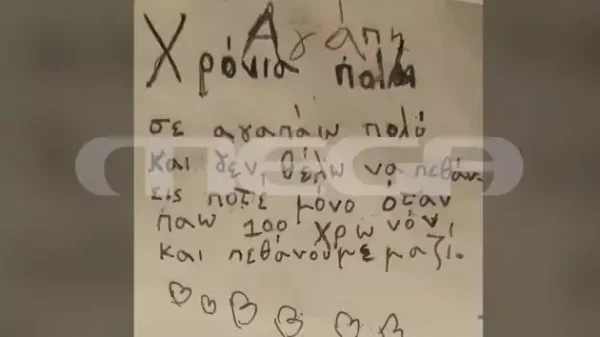 Αγάπη
Χρόνια πολλά
σε αγαπάω πολύ
και γεν θέλω να πεθάν
εις ποτέ μόνο όταν
παω 100 χρωνόν
και πεθάνουμε μαζί.
MEGA